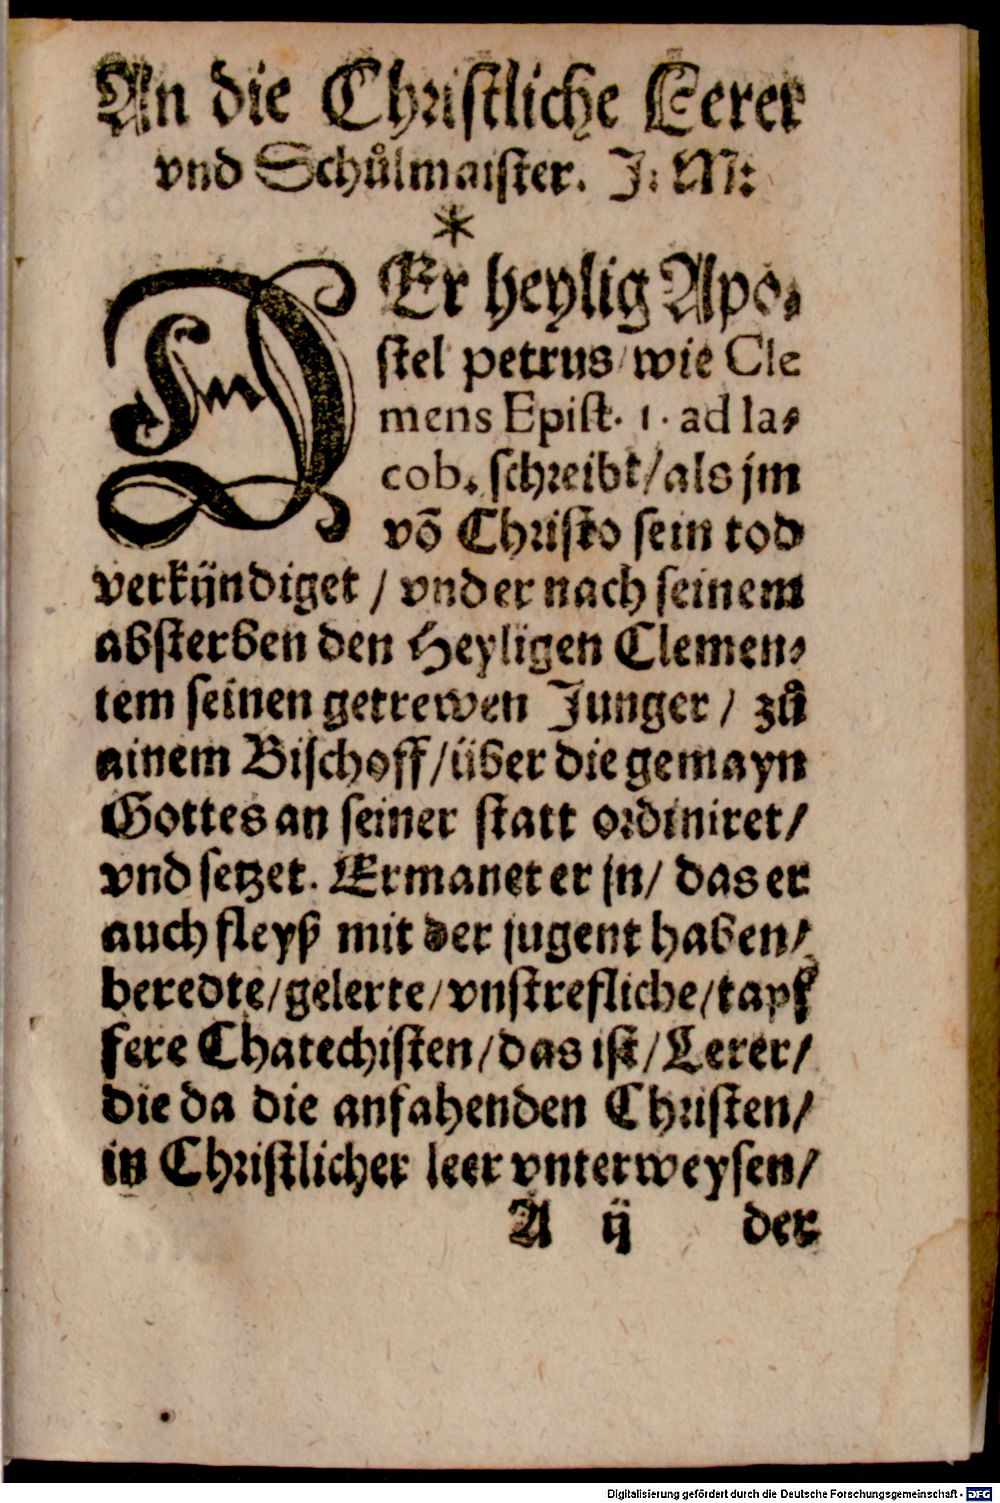 An die Christliche Lerer
vnd Schůlmaister. J: M:
*
DEr heylig Apo⸗
stel petrus / wie Cle
mens Epist. 1. ad Ia⸗
cob. schreibt / als jm
võ Christo sein tod
verkündiget / vnd er nach seinem
absterben den Heyligen Clemen⸗
tem seinen getrewen Junger / zů
ainem Bischoff / über die gemayn
Gottes an seiner statt ordiniret /
vnd setzet. Ermanet er jn / das er
auch fleyß mit der jugent haben /
beredte / gelerte / vnstrefliche / tapf
fere Chatechisten / das ist / Lerer /
die da die anfahenden Christen /
in Christlicher leer vnterweysen /
A ij der
Digitalisierung gefördert durch die Deutsche Forschungsgemeinschaft - DFG